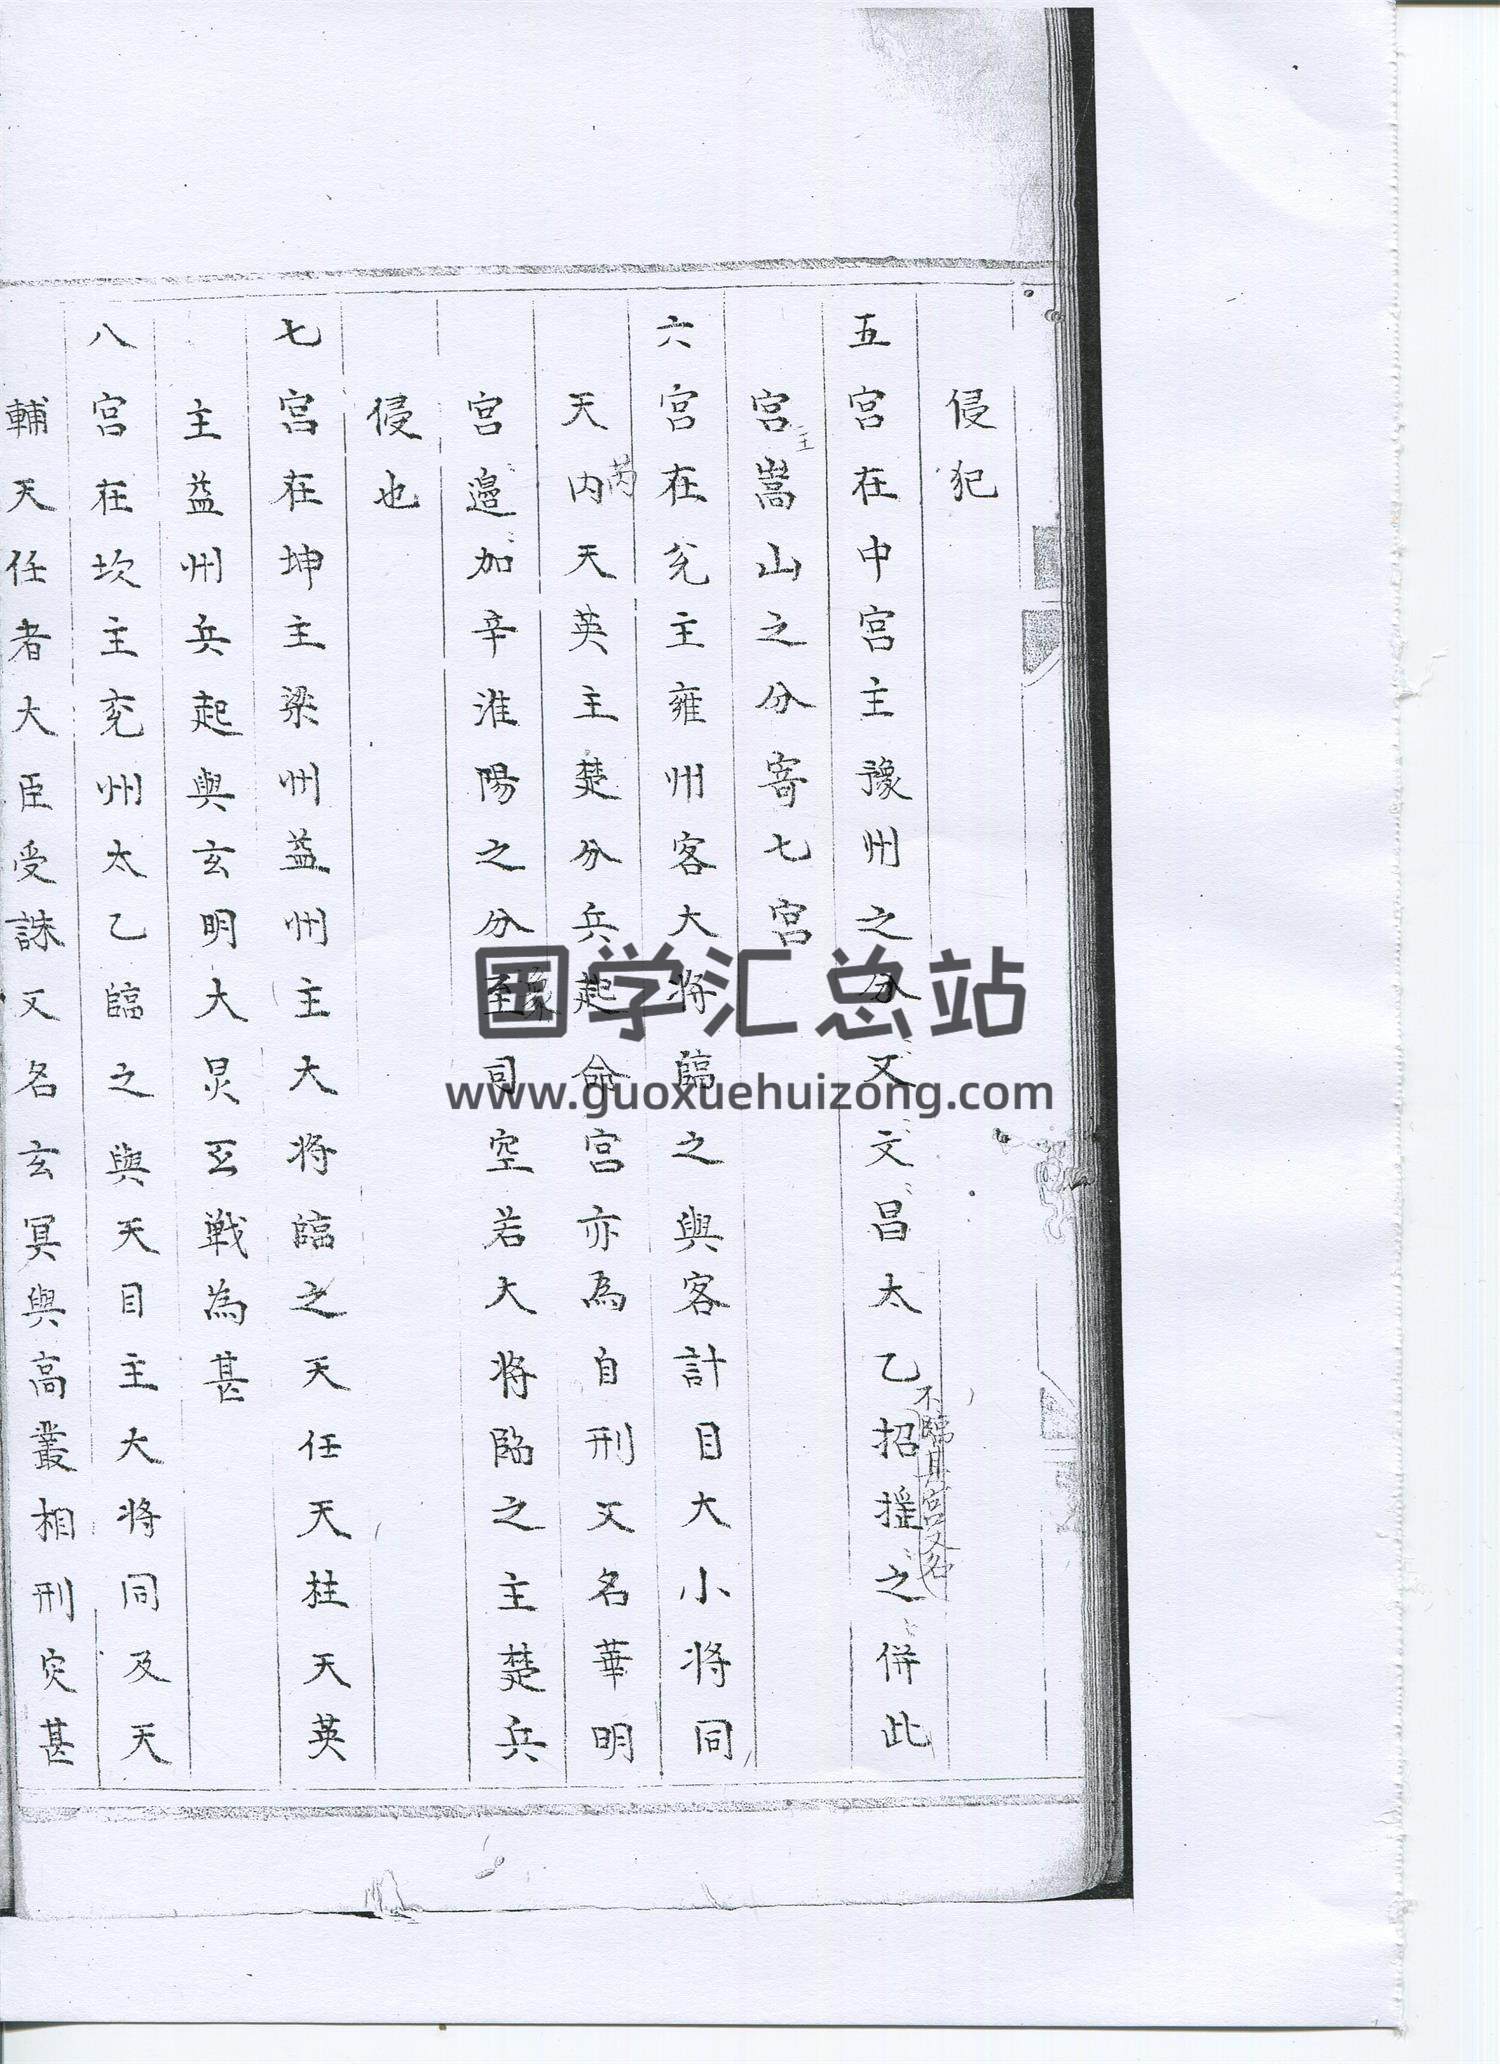 侵犯
五宮在中宮主豫州之分又文昌太乙招搖之併此
不臨其宮又名
宮嵩山之分寄七宮
主
六宮在兌主雍州客大將臨之與客計目大小將同
天內天英主楚分兵起命宮亦為自刑又名華明
芮
宮邊加辛淮陽之分至司空若大將臨之主楚兵
豫
侵也
七宮在坤主梁州益州主大將臨之天任天柱天英
主益州兵起與玄明大炅五戰為甚
八宮在坎主兗州太乙臨之與天目主大將同及天
輔天任者大臣受誅又名玄冥與高叢相刑灾甚
国学汇总站
www.guoxuehuizong.com